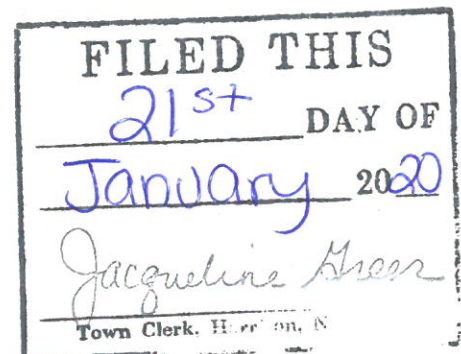 FILED THIS
21st DAY OF
January 2020
Jacqueline Greer
Town Clerk,